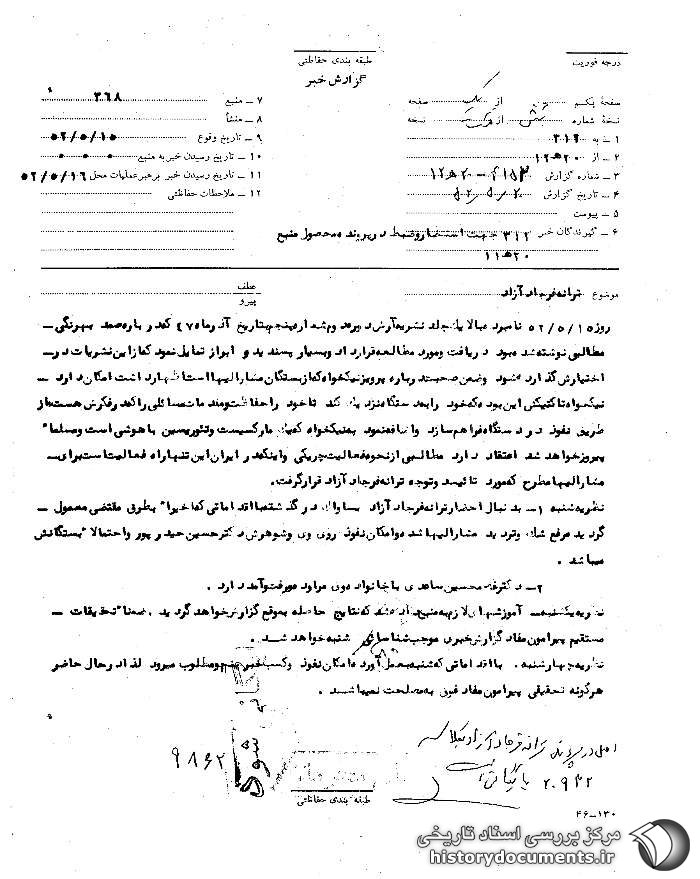 درجه فوریت
طبقه بندی حفاظتی
گزارش خبر
صفحهٔ یکم از یک صفحه
نسخهٔ شماره شش از نسخه
۱ ـ به ۳۱۲
۲ ـ از ۲۰ه۱۲
۳ ـ شماره گزارش ۲۰ه۱۲
۴ ـ تاریخ گزارش
۵ ـ پیوست
۶ ـ گیرندگان خبر ۳۱۲ جهت استحضار و ضبط در پرونده محصول منبع
۲۰ه۱۱
۷ ـ منبع ۳۶۸
۸ ـ منشأ
۹ ـ تاریخ وقوع ۵۲/۵/۱۵
۱۰ ـ تاریخ رسیدن خبر به منبع
۱۱ ـ تاریخ رسیدن خبر برهبرعملیات محل ۵۲/۵/۱۶
۱۲ ـ ملاحظات حفاظتی
موضوع ترانه فرجاد آزاد
عطف
پیرو
روز ۵۲/۵/۱۵ نامبرده بالا یک جلد نشریه آرش دوره دوم شماره پنجم بتاریخ آذرماه ۴۷ که درباره صمد بهرنگی ـ
مطالبی نوشته شده بود دریافت و مورد مطالعه قرار داد و بسیار پسندید و ابراز تمایل نمود که از این نشریات در ـ
اختیارش گذارده شود و ضمن صحبت درباره پرویز نیکخواه که از بستگان مشارالیها است اظهار داشت امکان دارد ـ
نیکخواه تاکتیکش این بوده که خود را به دستگاه نزدیک کند تا خود را حفاظت و مدتها مسائلی را که در فکرش هست از
طریق نفوذ در دستگاه فراهم سازد و اضافه نمود به نیکخواه که یک مارکسیست و تئوریسین باهوشی است و مسلماً
پیروز خواهد شد اعتقاد دارد مطالبی از نحوه فعالیت چریکی و اینکه در ایران این تنها راه فعالیت است برای ـ
مشارالیها مطرح که مورد تائید و توجه ترانه فرجاد آزاد قرار گرفت.
نظریه شنبه ۱ ـ بدنبال احضار ترانه فرجاد آزاد بساواک در گذشته با اقداماتی که اخیراً بطرق مقتضی معمول ـ
گردید رفع شک و تردید مشارالیها شده و امکان نفوذ روی وی و شوهرش دکتر حسین حیدرپور و احتمالاً بستگانش
میباشد .
۲ ـ دکتر غلامحسین ساعدی با خانواده وی مراوده و رفت و آمد دارد .
نظریه یکشنبه ـ آموزشهای لازم به منبع داده شد که نتایج حاصله به موقع گزارش خواهد گردید . ضمناً تحقیقات ـ
مستقیم پیرامون مفاد گزارش خبری موجب شناسائی شنبه خواهد شد .
نظریه چهارشنبه . با اقداماتی که شنبه بعمل آورده امکان نفوذ و کسب خبر مهم و مطلوب میرود لذا در حال حاضر
هرگونه تحقیقی پیرامون مفاد فوق به مصلحت نمیباشد .
اصل در پرونده ترانه فرجاد آزاد بکلاسه
۲۰۹۴۲ بایگانی
طبقه بندی حفاظتی
۴۶ـ۱۳۰
مرکز بررسی اسناد تاریخی
historydocuments.ir